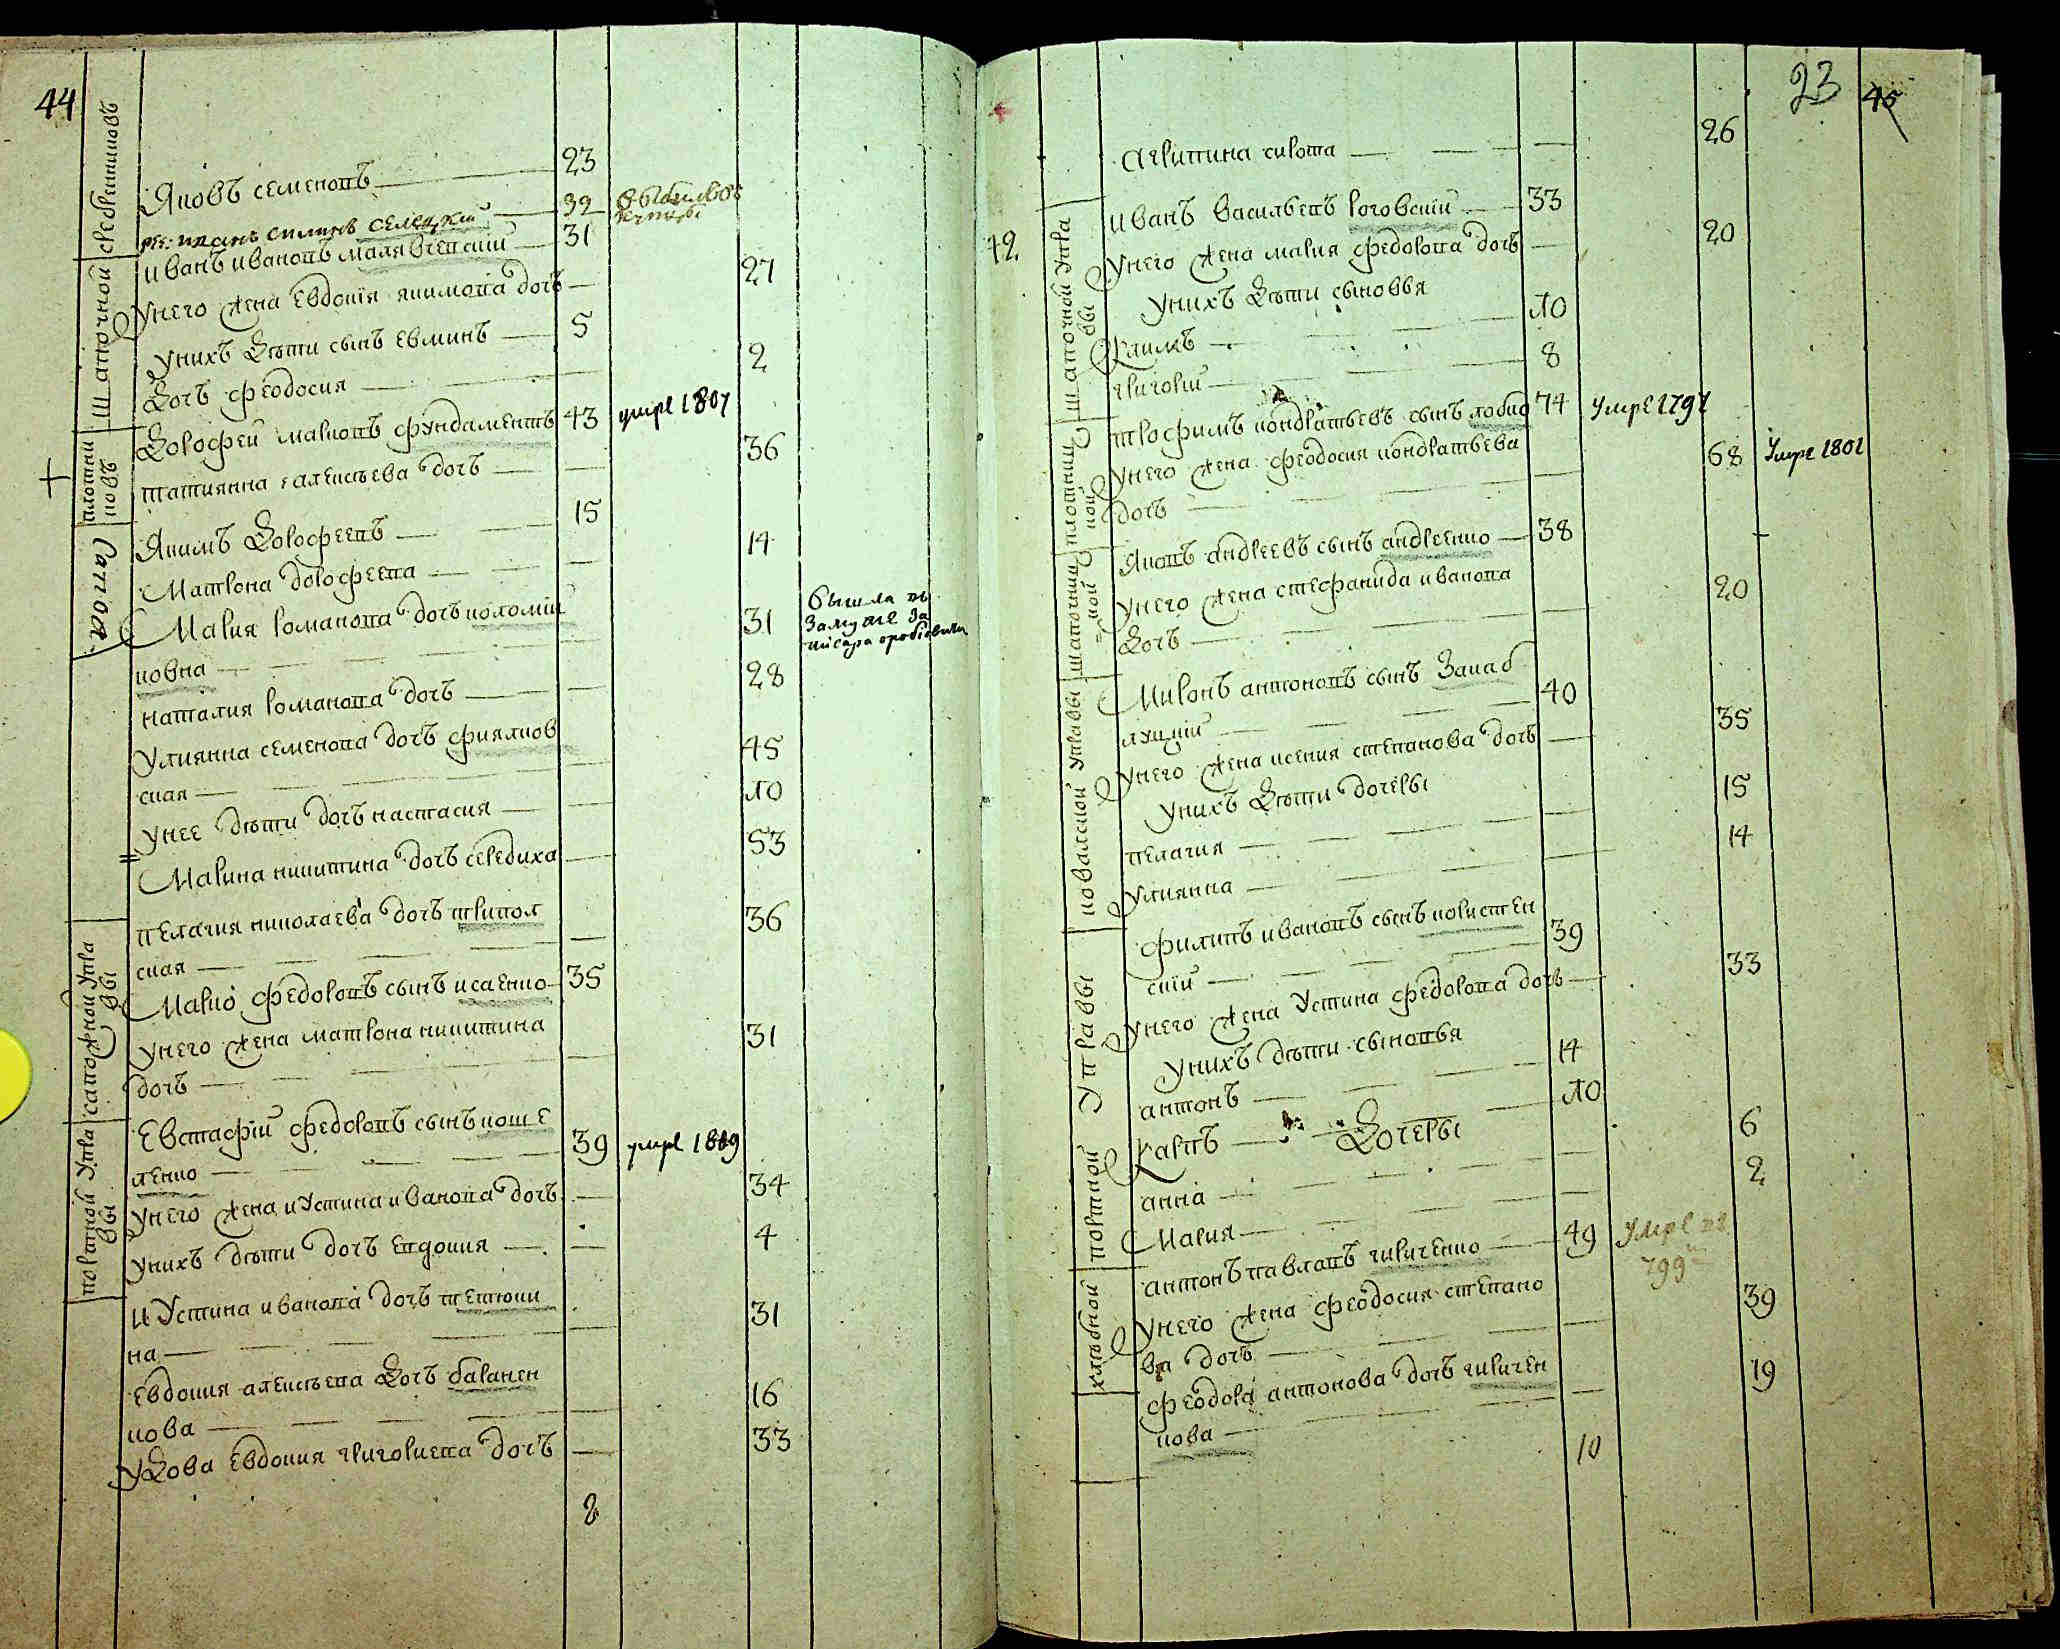 44
сребенниковъ
Яковъ семеновъ 23
Иванъ силинъ селецкій 32
Иванъ Ивановъ малявченскій 31
шапочной
унего жена Евдокія якимова дочь 27
унихъ дѣти сынъ Евминъ 5
дочь феодосия 2
плотниковъ
дорофей марковъ фундаментъ 43 умре 1807
татиянна алексѣева дочь 36
Якимъ дорофеевъ 15
Матрона дорофеева 14
Мария романова дочь коломій
ковна 31 вышла въ замуже за писара
наталия романова дочь 28
улиянна семенова дочь фиялков
ская 45
унее дѣти дочь настасия 10
Марина никитина дочь середиха 53
пелагия николаева дочь трипол
ская 36
сапожной управы
Марко федоровъ сынъ исаенко 35
унего жена матрона никитина
дочь 31
портной управы
Евстафій федоровъ сынъ коше
ленко 39 умре 1809
унего жена иустина иванова дочь 34
унихъ дѣти дочь евдокия 4
иустина иванова дочь тетюки
на 31
евдокия алексѣева дочь баранен
кова 16
удова Евдокия григориева дочь 33
8
23
45
агрипина сирота 26
42
шапочной управы
иванъ васильевъ роговский 33
унего жена мария федорова дочь 20
унихъ дѣти сыновья
климъ 10
григорій 8
плотницкой
трофимъ кондратьевъ сынъ лобко 74 умре 1797
унего жена феодосия кондратьева
дочь 68 умре 1801
шапошницкой
Яковъ андреевъ сынъ андреенко 38
унего жена стефанида иванова
дочь 20
ковалской управы
Миронъ антоновъ сынъ Запаб
луцкій 40
унего жена ксения степанова дочь 35
унихъ дѣти дочеры
пелагия 15
улиянна 14
портной управы
филипъ ивановъ сынъ користен
скій 39
унего жена устина федорова дочь 33
унихъ дѣти сыновья
антонъ 14
карпъ 10
дочеры
анна 6
Мария 2
хлѣбной
антонъ павловъ гириченко 49 умре въ 799
унего жена феодосия степано
ва дочь 39
феодора антонова дочь киричен
кова 19
10